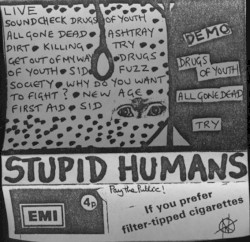 LIVE
SOUNDCHECK DRUGS OF YOUTH
ALL GONE DEAD • ASHTRAY
DIRT • KILLING TRY
GET OUT OF MY WAY • DRUGS
OF YOUTH • SID • FUZZ
SOCIETY • WHY DO YOU WANT
TO FIGHT? • NEW AGE •
FIRST AID • SID
DEMO
DRUGS
OF YOUTH
ALL GONE DEAD
TRY
STUPID HUMANS
Pay the Public!
EMI
4p
If you prefer
filter-tipped cigarettes